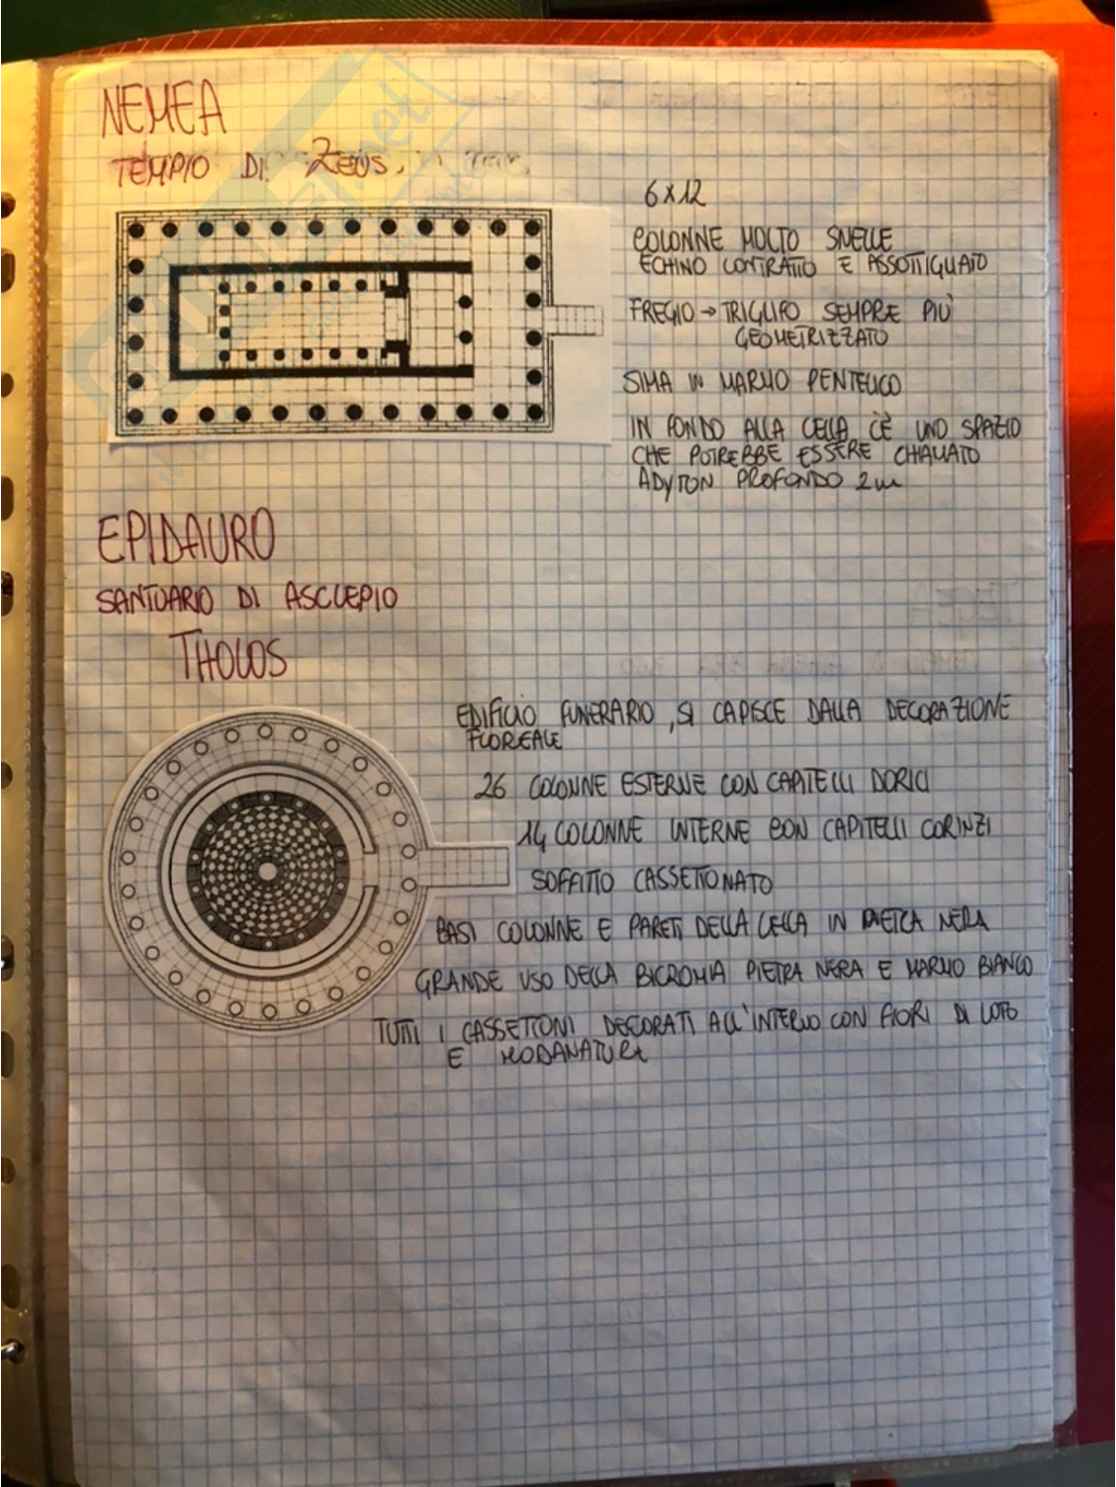 NEMEA
TEMPIO DI ZEUS.
6X12
COLONNE MOLTO SNELLE
ECHINO CONTRATTO E ASSOTTIGLIATO
FREGIO → TRIGLIFO SEMPRE PIÙ
GEOMETRIZZATO
SIMA IN MARMO PENTELICO
IN FONDO ALLA CELLA C'È UNO SPAZIO
CHE POTREBBE ESSERE CHIAMATO
ADYTON PROFONDO 2m
EPIDAURO
SANTUARIO DI ASCLEPIO
THOLOS
EDIFICIO FUNERARIO, SI CAPISCE DALLA DECORAZIONE
FLOREALE
26 COLONNE ESTERNE CON CAPITELLI DORICI
14 COLONNE INTERNE CON CAPITELLI CORINZI
SOFFITTO CASSETTONATO
BASI COLONNE E PARETI DELLA CELLA IN PIETRA NERA
GRANDE USO DELLA BICROMIA PIETRA NERA E MARMO BIANCO
TUTTI I CASSETTONI DECORATI ALL'INTERNO CON FIORI DI LOTO
E MODANATURA